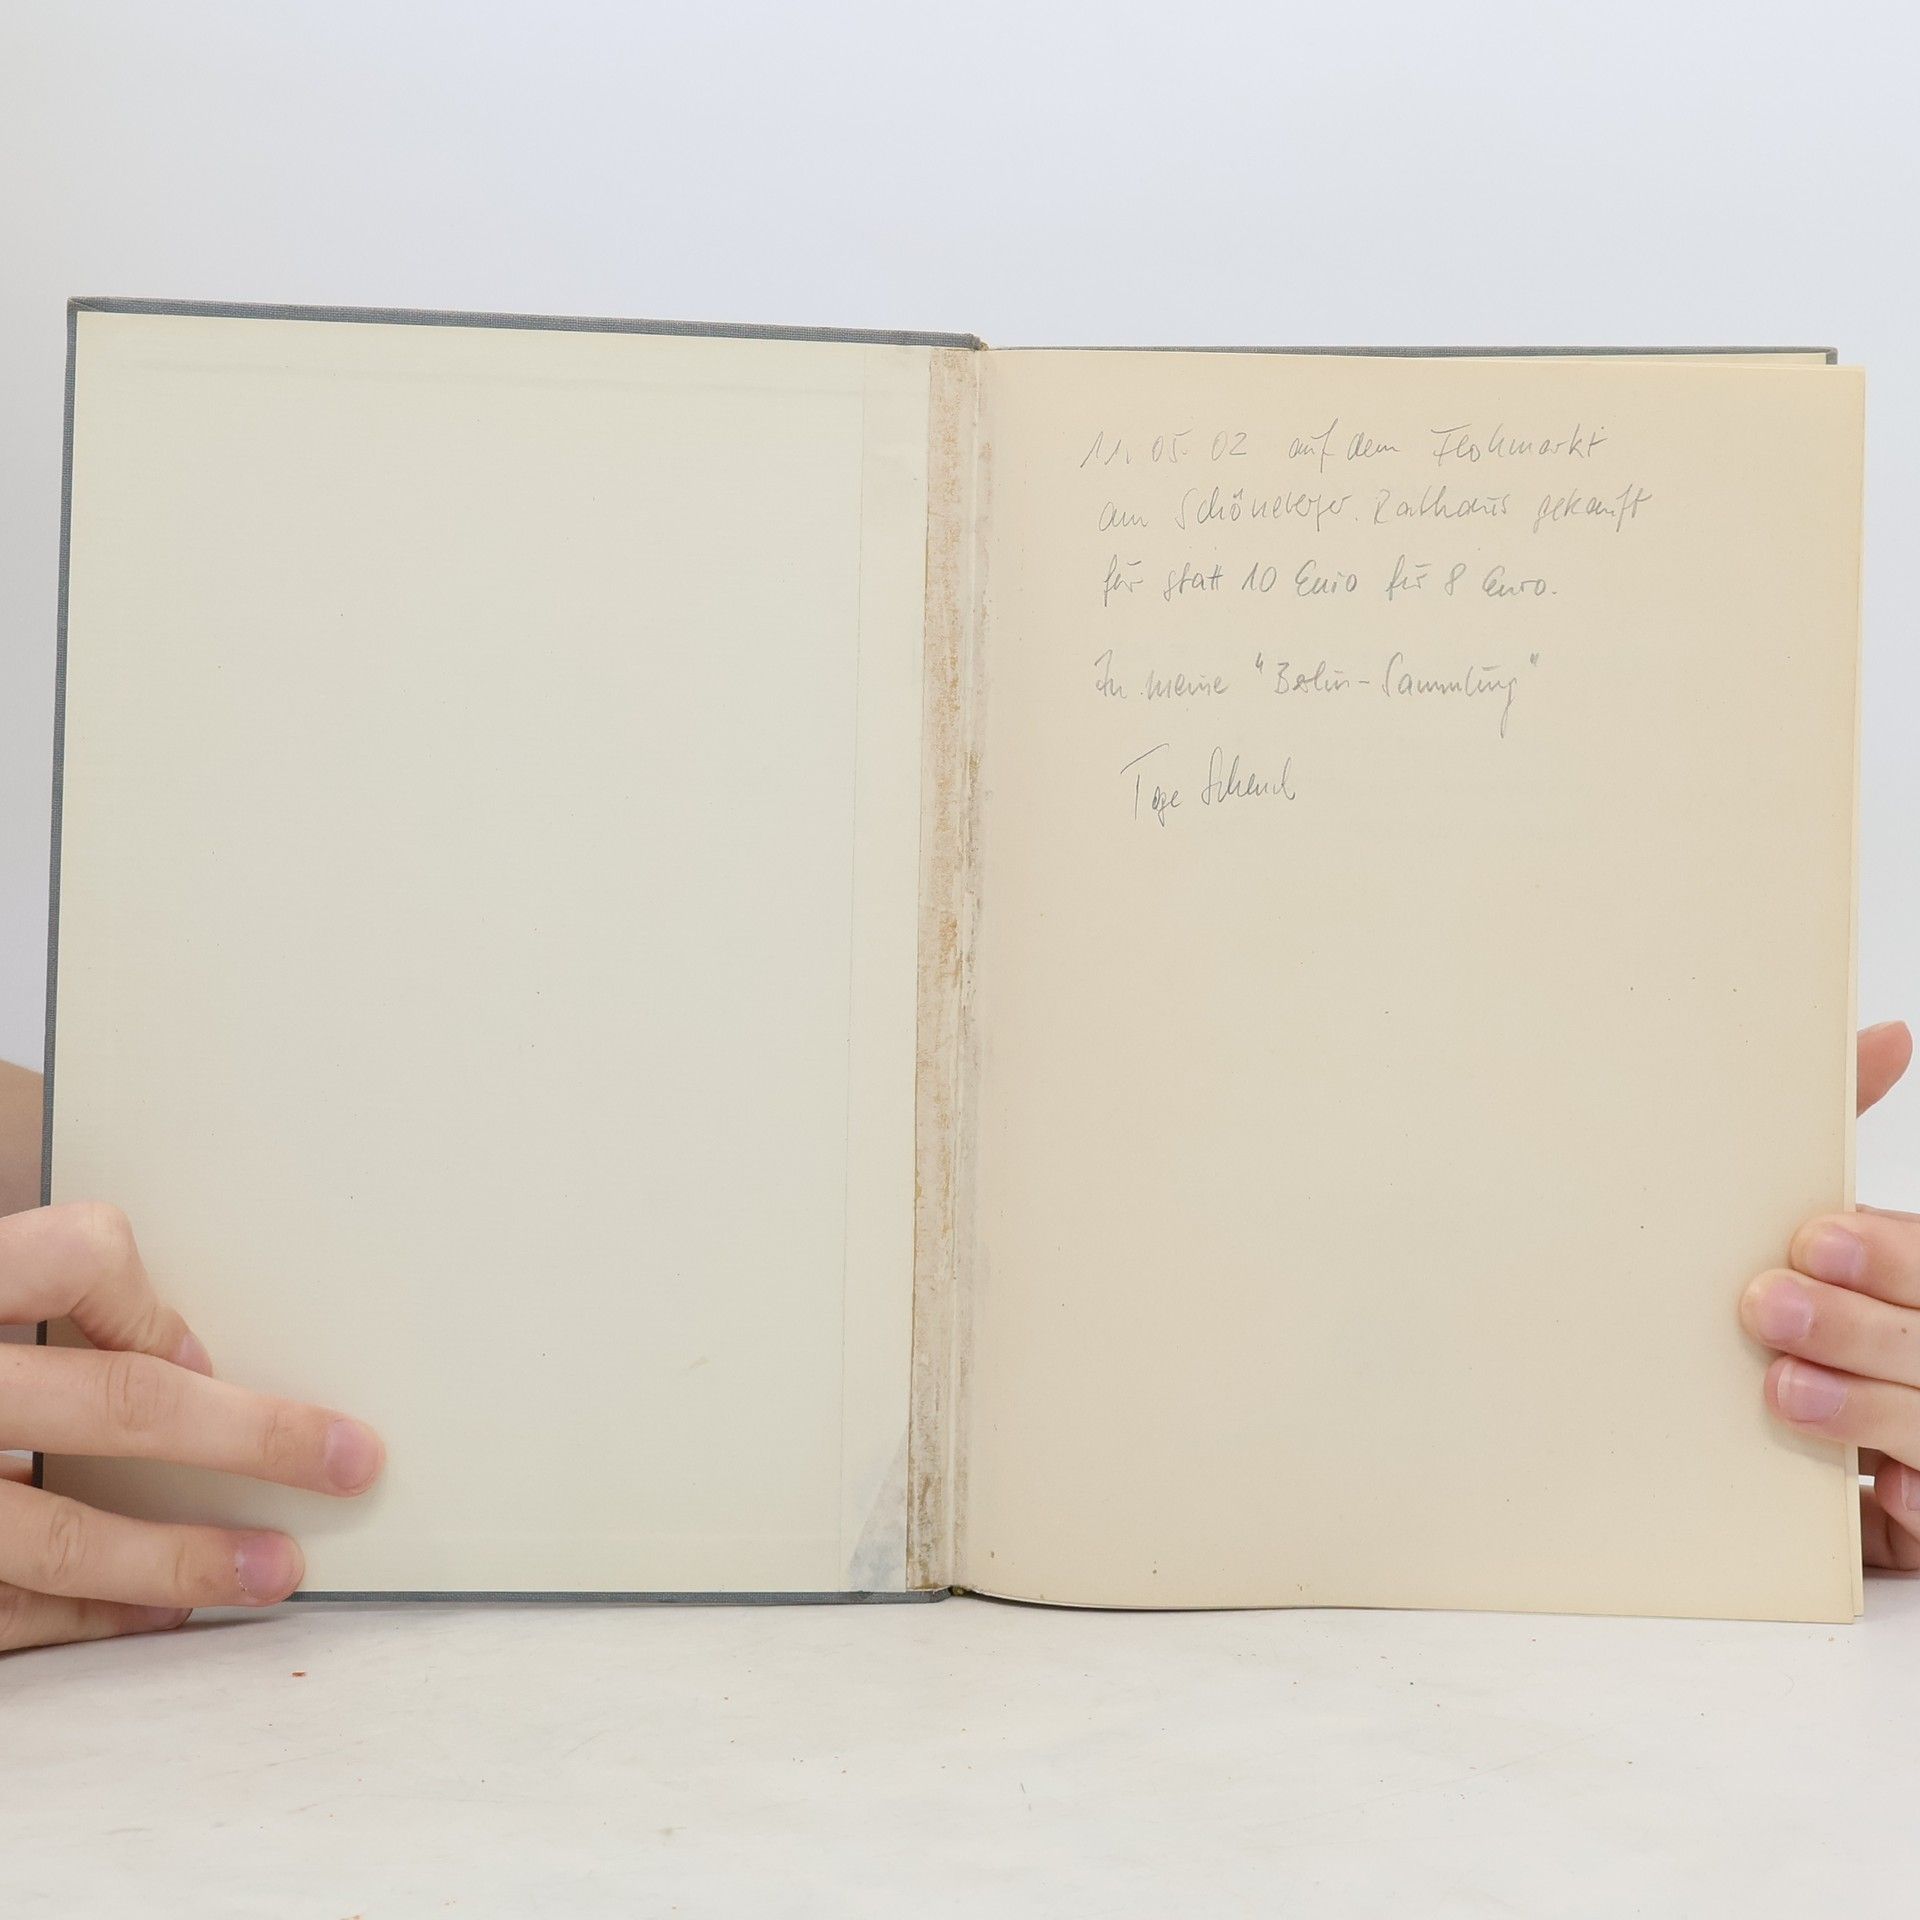 11. 05. 02 auf dem Flohmarkt
am Schöneberger Rathaus gekauft
für statt 10 Euro für 8 Euro.
In meine "Berlin-Sammlung"